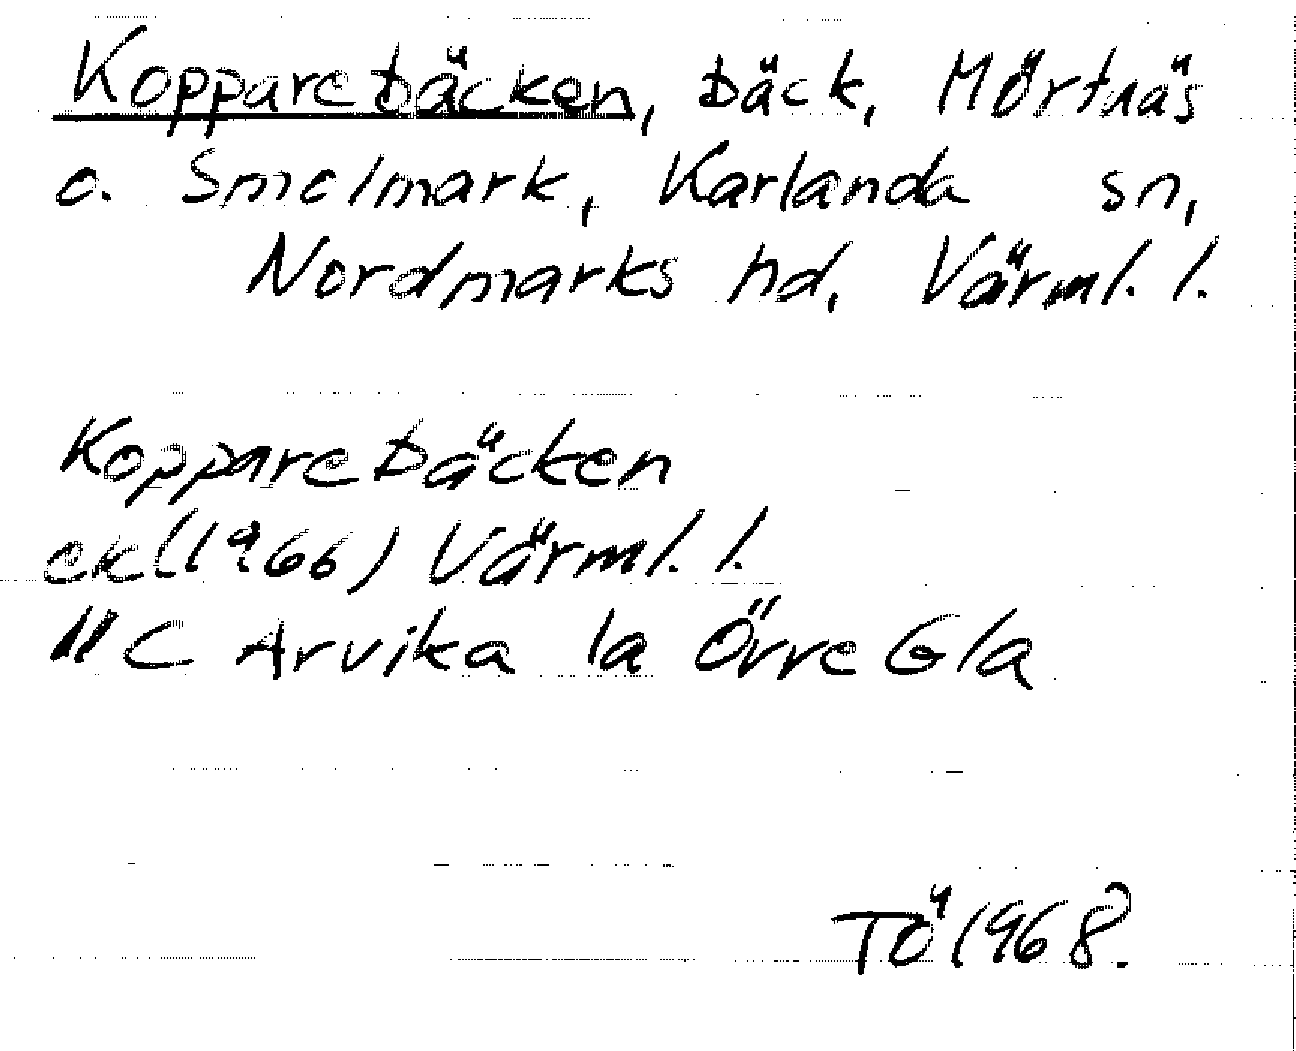 Kopparebäcken, bäck, Mörtnäs
o. Smolmark, Karlanda sn,
Nordmarks hd, Värml. l.
Kopparebäcken
ek (1966) Värml. l.
11C Arvika 1a Övre Gla
TÖ 1968.